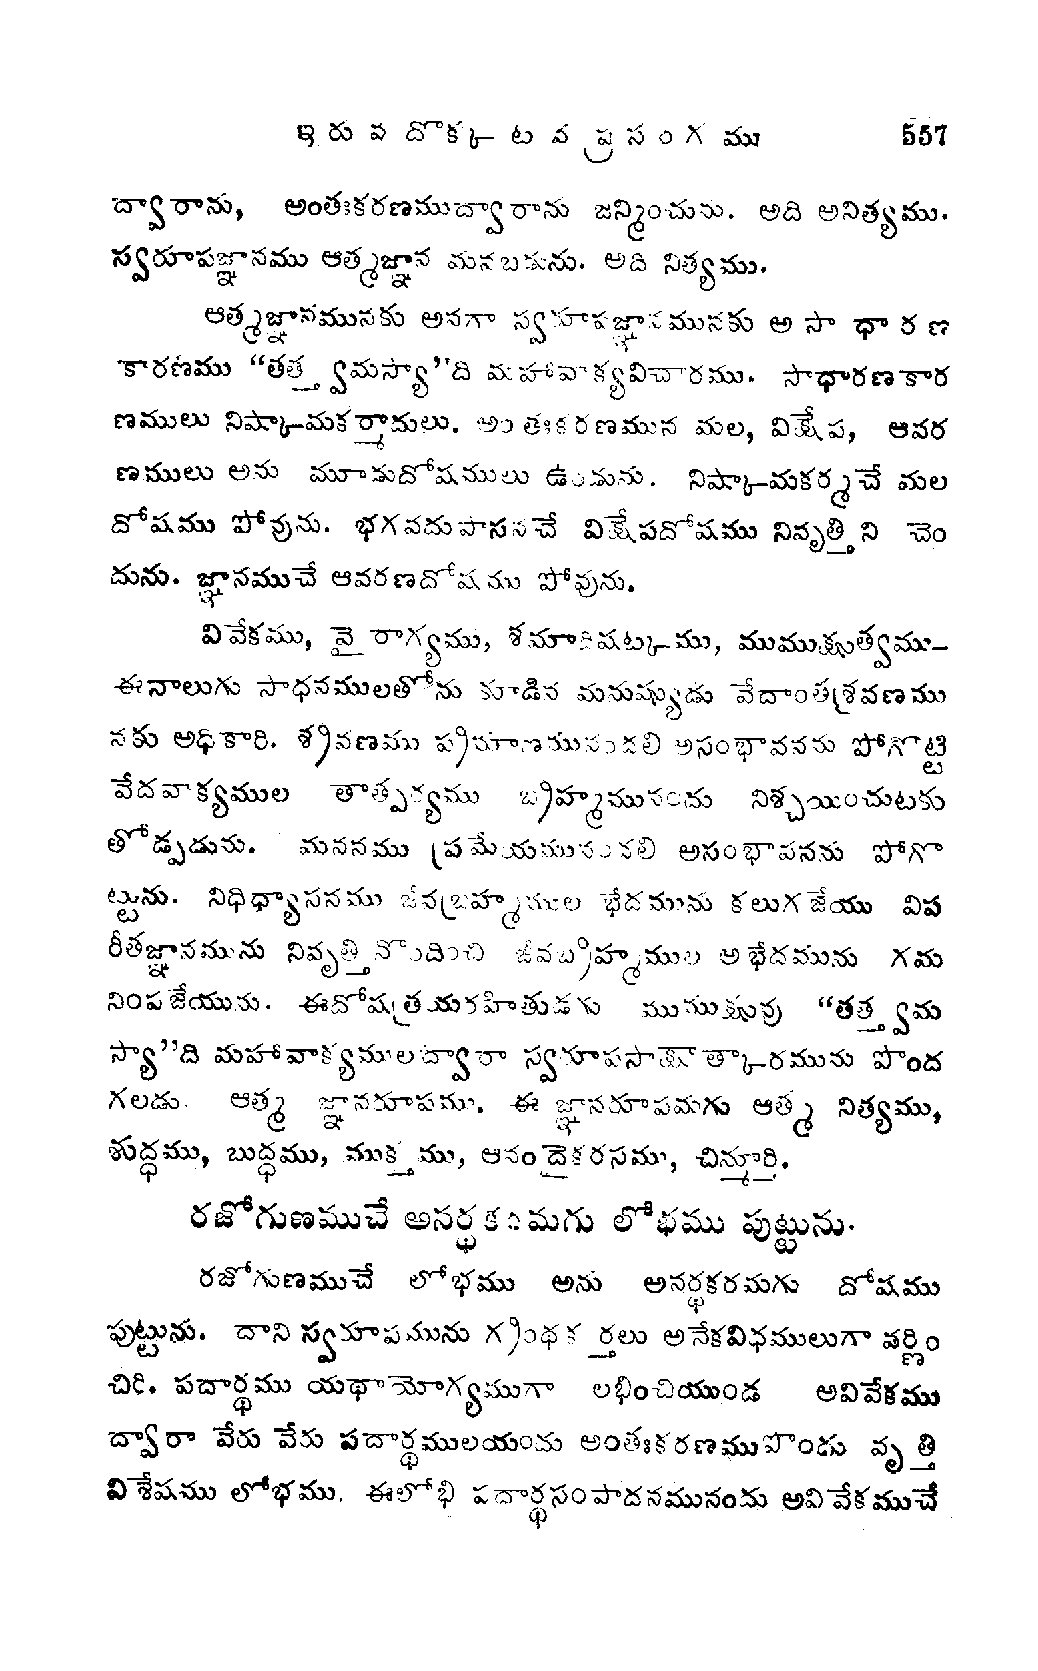 ఇరువదొక్కటవ ప్రసంగము 557
ద్వారాను, అంతఃకరణముద్వారాను జన్మించును. అది అనిత్యము.
స్వరూపజ్ఞానము ఆత్మజ్ఞాన మనబడును. అది నిత్యము.
ఆత్మజ్ఞానమునకు అనగా స్వరూపజ్ఞానమునకు అ సా ధా ర ణ
కారణము “తత్త్వమస్యా”ది మహావాక్యవిచారము. సాధారణకార
ణములు నిష్కామకర్మాదులు. అంతఃకరణమున మల, విక్షేప, ఆవర
ణములు అను మూడుదోషములు ఉండును. నిష్కామకర్మచే మల
దోషము పోవును. భగవదుపాసనచే విక్షేపదోషము నివృత్తిని చెం
దును. జ్ఞానముచే ఆవరణదోషము పోవును.
వివేకము, వైరాగ్యము, శమాదిషట్కము, ముముక్షుత్వము-
ఈనాలుగు సాధనములతోను కూడిన మనుష్యుడు వేదాంతశ్రవణము
నకు అధికారి. శ్రవణము ప్రమాణమునందలి అసంభావనను పోగొట్టి
వేదవాక్యముల తాత్పర్యము బ్రహ్మమునందు నిశ్చయించుటకు
తోడ్పడును. మననము ప్రమేయమునందలి అసంభావనను పోగొ
ట్టును. నిధిధ్యాసనము జీవబ్రహ్మముల భేదమును కలుగజేయు విప
రీతజ్ఞానమును నివృత్తి నొందించి జీవబ్రహ్మముల అభేదమును గమ
నింపజేయును. ఈదోషత్రయరహితుడగు ముముక్షువు “తత్త్వమ
స్యా”ది మహావాక్యములద్వారా స్వరూపసాక్షాత్కారమును పొంద
గలడు. ఆత్మ జ్ఞానరూపము. ఈ జ్ఞానరూపమగు ఆత్మ నిత్యము,
శుద్ధము, బుద్ధము, ముక్తము, ఆనందైకరసము, చిన్మూర్తి.
రజోగుణముచే అనర్థకరమగు లోభము పుట్టును.
రజోగుణముచే లోభము అను అనర్థకరమగు దోషము
పుట్టును. దాని స్వరూపమును గ్రంథకర్తలు అనేకవిధములుగా వర్ణిం
చిరి. పదార్థము యథాయోగ్యముగా లభించియుండ అవివేకము
ద్వారా వేరు వేరు పదార్థములయందు అంతఃకరణముపొందు వృత్తి
విశేషము లోభము. ఈలోభి పదార్థసంపాదనమునందు అవివేకముచే